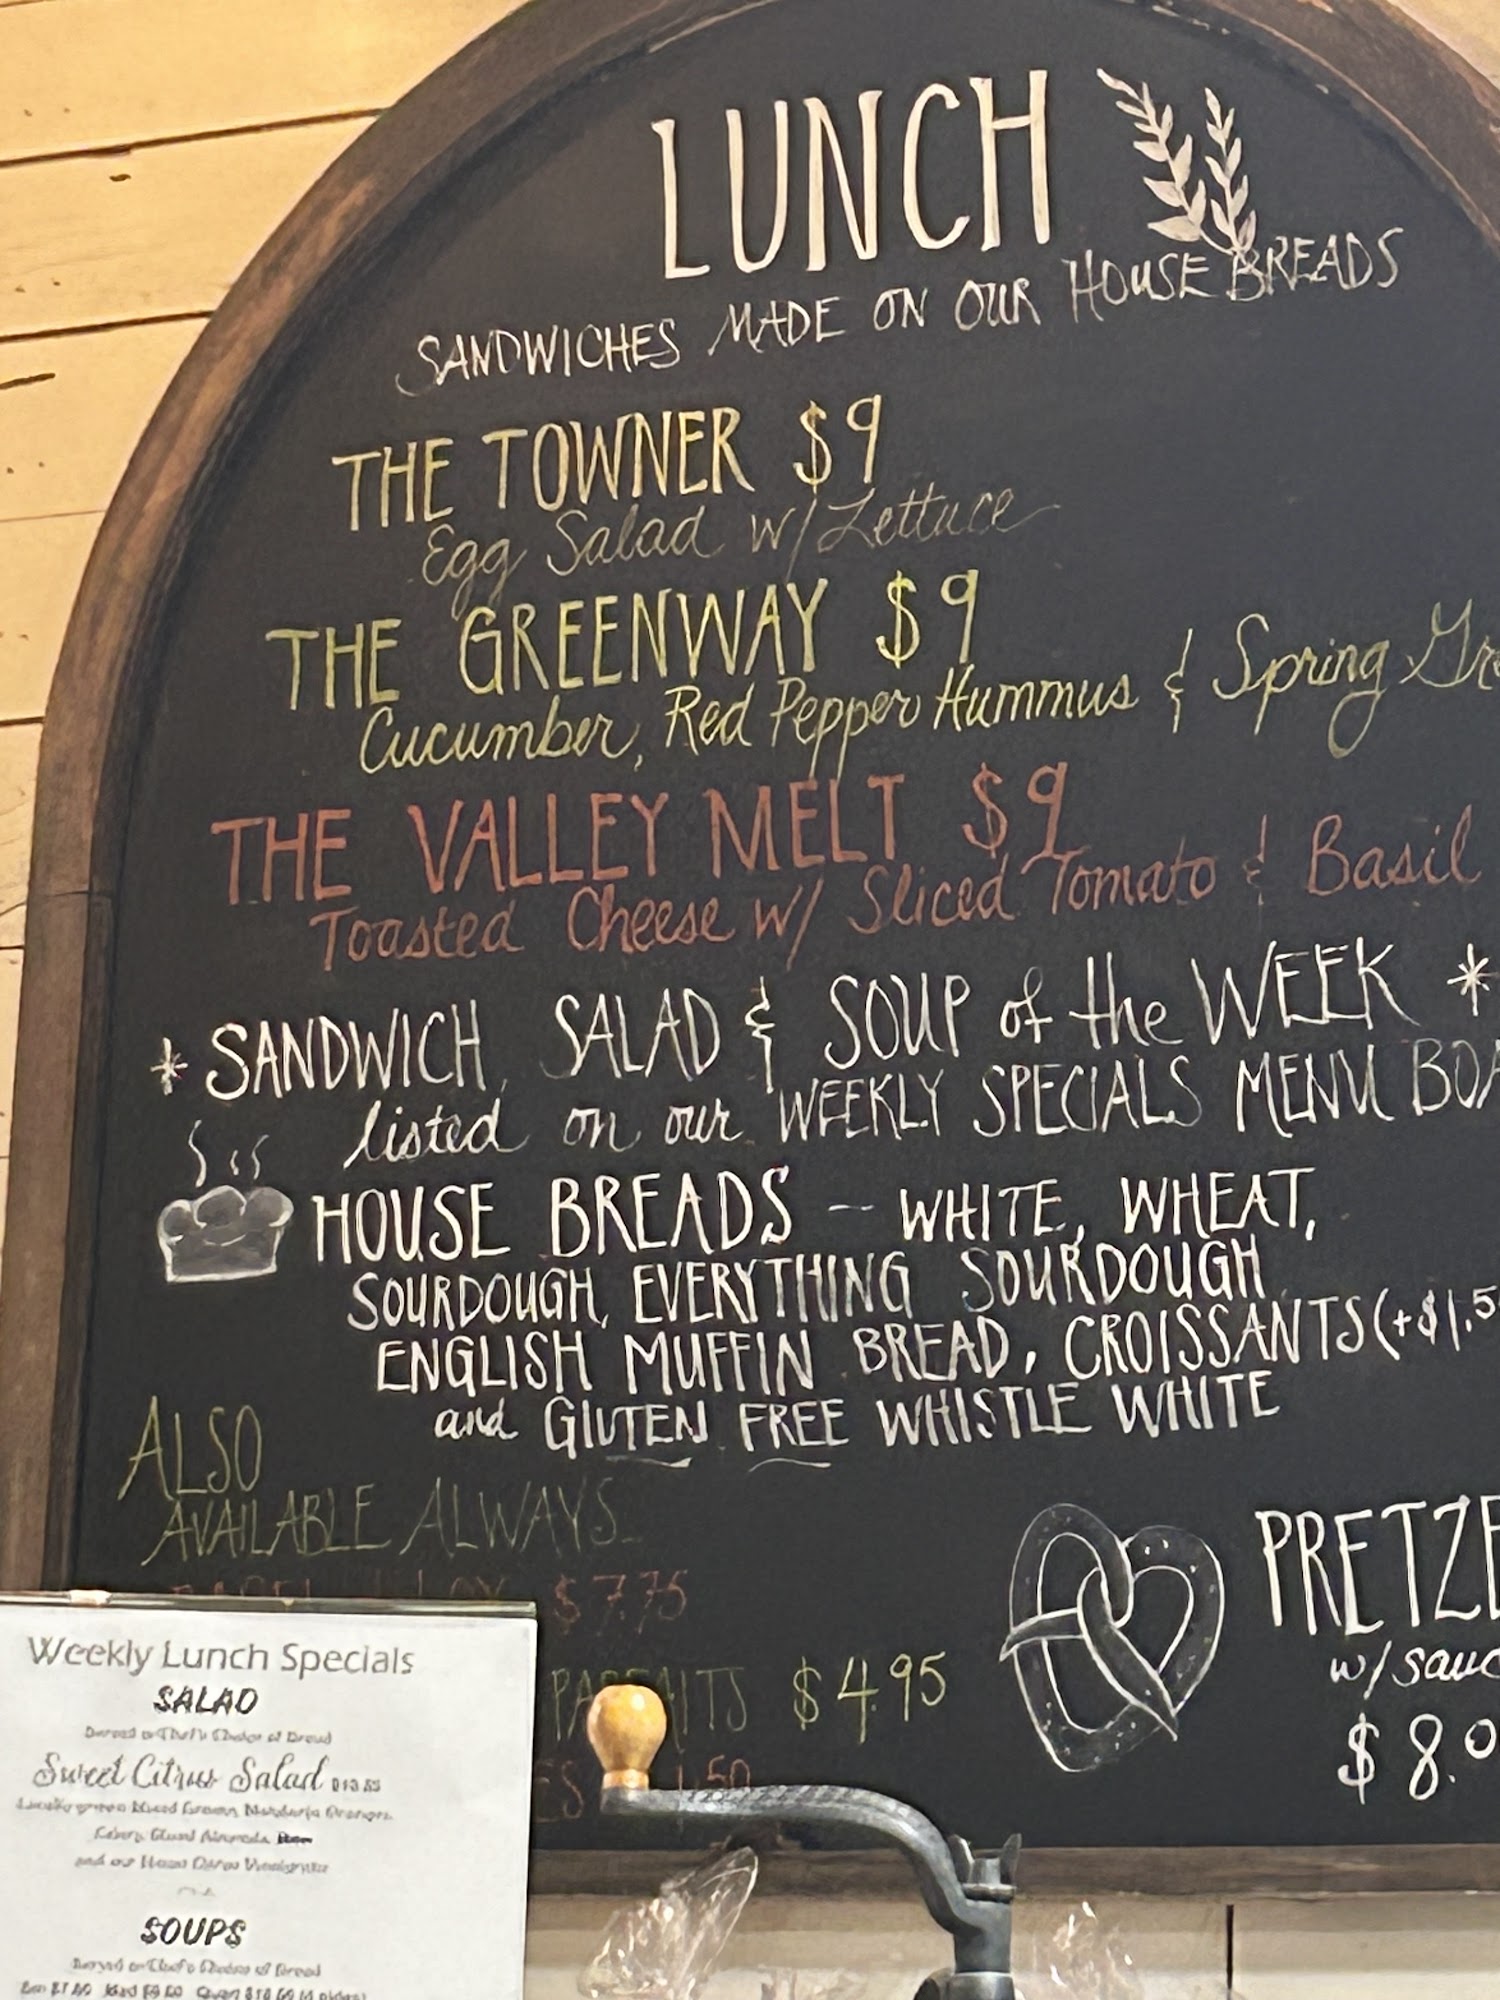 LUNCH
SANDWICHES MADE ON OUR HOUSE BREADS
THE TOWNER $9
Egg Salad w/ Lettuce
THE GREENWAY $9
Cucumber, Red Pepper Hummus & Spring Gre
THE VALLEY MELT $9
Toasted Cheese w/ Sliced Tomato & Basil
* SANDWICH, SALAD & SOUP of the WEEK *
listed on our WEEKLY SPECIALS MENU BOA
HOUSE BREADS - WHITE, WHEAT,
SOURDOUGH, EVERYTHING SOURDOUGH
ENGLISH MUFFIN BREAD, CROISSANTS (+$1.50
and GLUTEN FREE WHISTLE WHITE
ALSO
AVAILABLE ALWAYS
$7.75
$4.95
1.50
PRETZE
w/ sauc
$8.0
Weekly Lunch Specials
SALAD
Served w/Chef's Choice of Bread
Sweet Citrus Salad
SOUPS
Served w/Chef's Choice of Bread